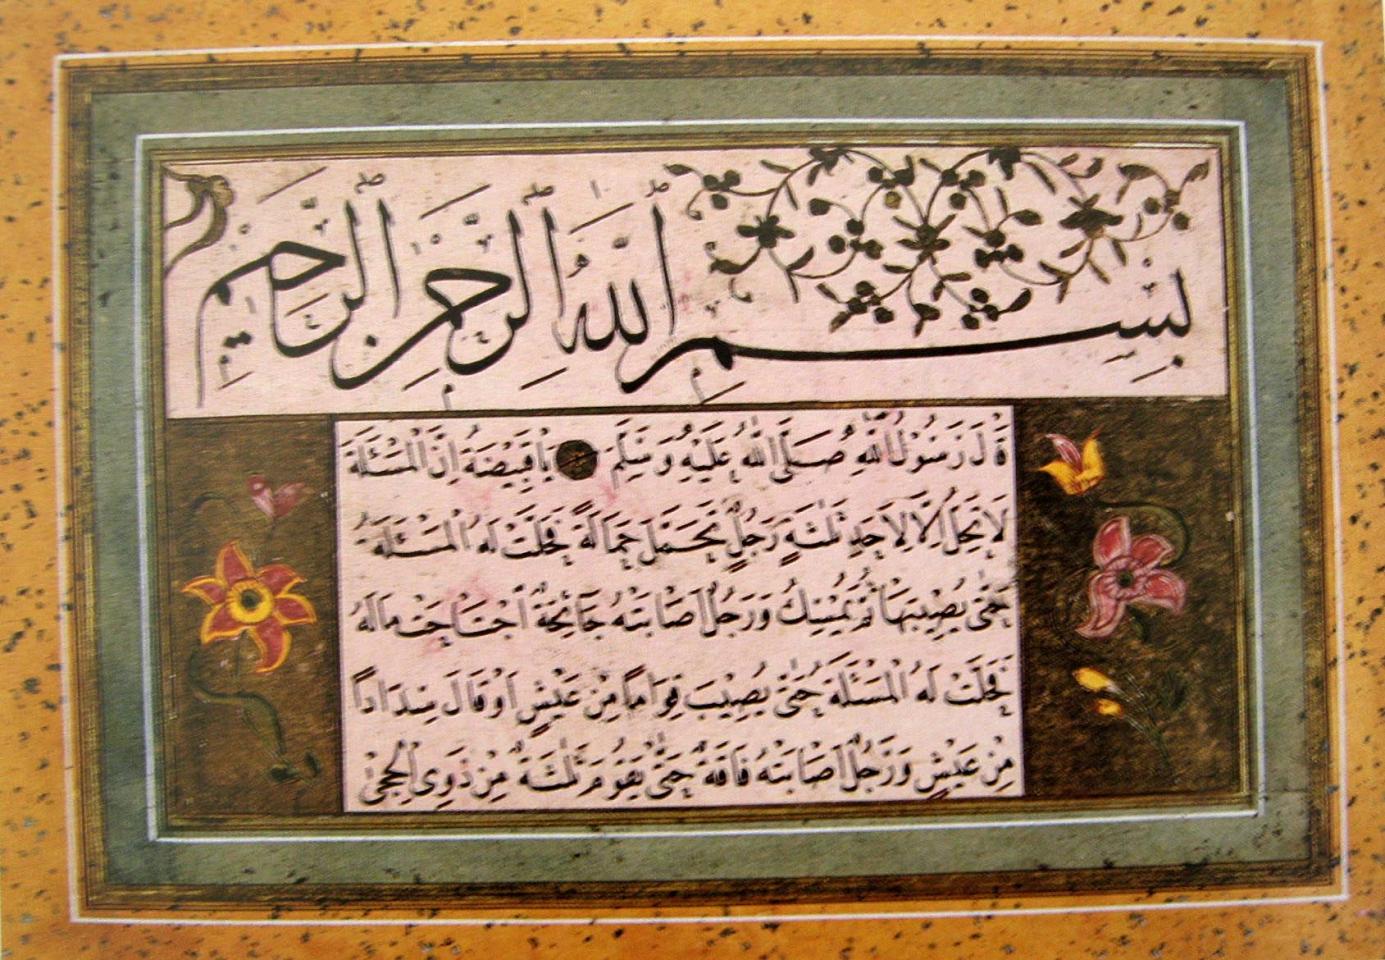 بِسْمِ اللّٰهِ الرَّحْمٰنِ الرَّحِيمِ
قَالَ رَسُولُ اللّٰهِ صَلَّى اللّٰهُ عَلَيْهِ وَسَلَّمَ يَا قَبِيصَةُ اِنَّ الْمَسْئَلَةَ
لَا تَحِلُّ اِلَّا لِاَحَدِ ثَلٰثَةٍ رَجُلٌ تَحَمَّلَ حَمَالَةً فَحَلَّتْ لَهُ الْمَسْئَلَةُ
حَتّٰى يُصِيبَهَا ثُمَّ يُمْسِكُ وَرَجُلٌ اَصَابَتْهُ جَائِحَةٌ اجْتَاحَتْ مَالَهُ
فَحَلَّتْ لَهُ الْمَسْئَلَةُ حَتّٰى يُصِيبَ قِوَامًا مِنْ عَيْشٍ اَوْ قَالَ سِدَادًا
مِنْ عَيْشٍ وَرَجُلٌ اَصَابَتْهُ فَاقَةٌ حَتّٰى يَقُومَ ثَلٰثَةٌ مِنْ ذَوِي الْحِجٰى